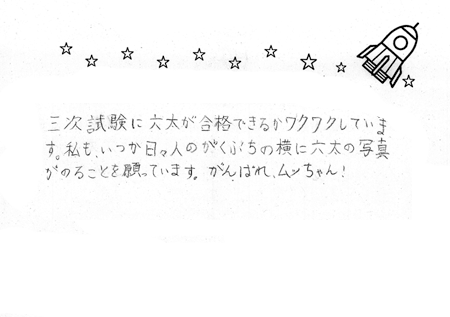 三次試験に六太が合格できるかワクワクしていま
す。私も、いつか日々人のがくぶちの横に六太の写真
がのることを願っています。がんばれ、ムッちゃん!